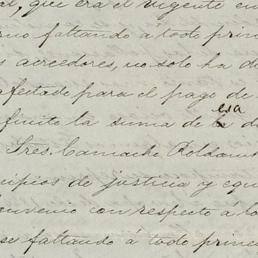 que era el vigente en
faltando á todo prin
acreedores, no solo ha d
afectado para el pago de
esa
finito la suma de la d
Sres. Camacho Roldan
cipios de justicia y equ
convenio con respecto á lo
se faltando á todo princ